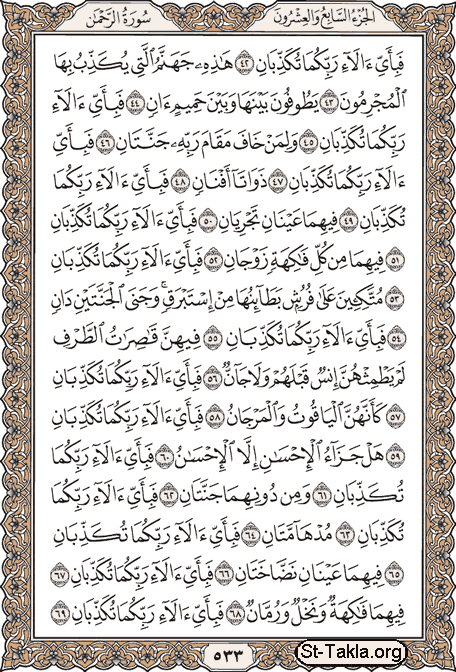 سُورَةُ الرَّحْمٰن
الجُزْءُ السَّابِعُ وَالعِشْرُونَ
فَبِأَيِّ ءَالَآءِ رَبِّكُمَا تُكَذِّبَانِ ٤٢ هَٰذِهِۦ جَهَنَّمُ ٱلَّتِي يُكَذِّبُ بِهَا
ٱلْمُجْرِمُونَ ٤٣ يَطُوفُونَ بَيْنَهَا وَبَيْنَ حَمِيمٍ ءَانٍ ٤٤ فَبِأَيِّ ءَالَآءِ
رَبِّكُمَا تُكَذِّبَانِ ٤٥ وَلِمَنْ خَافَ مَقَامَ رَبِّهِۦ جَنَّتَانِ ٤٦ فَبِأَيِّ
ءَالَآءِ رَبِّكُمَا تُكَذِّبَانِ ٤٧ ذَوَاتَآ أَفْنَانٍ ٤٨ فَبِأَيِّ ءَالَآءِ رَبِّكُمَا
تُكَذِّبَانِ ٤٩ فِيهِمَا عَيْنَانِ تَجْرِيَانِ ٥٠ فَبِأَيِّ ءَالَآءِ رَبِّكُمَا تُكَذِّبَانِ
٥١ فِيهِمَا مِن كُلِّ فَٰكِهَةٍ زَوْجَانِ ٥٢ فَبِأَيِّ ءَالَآءِ رَبِّكُمَا تُكَذِّبَانِ
٥٣ مُتَّكِـِٔينَ عَلَىٰ فُرُشٍۭ بَطَآئِنُهَا مِنْ إِسْتَبْرَقٍۚ وَجَنَى ٱلْجَنَّتَيْنِ دَانٍ
٥٤ فَبِأَيِّ ءَالَآءِ رَبِّكُمَا تُكَذِّبَانِ ٥٥ فِيهِنَّ قَٰصِرَٰتُ ٱلطَّرْفِ
لَمْ يَطْمِثْهُنَّ إِنسٌ قَبْلَهُمْ وَلَا جَآنٌّ ٥٦ فَبِأَيِّ ءَالَآءِ رَبِّكُمَا تُكَذِّبَانِ
٥٧ كَأَنَّهُنَّ ٱلْيَاقُوتُ وَٱلْمَرْجَانُ ٥٨ فَبِأَيِّ ءَالَآءِ رَبِّكُمَا تُكَذِّبَانِ
٥٩ هَلْ جَزَآءُ ٱلْإِحْسَٰنِ إِلَّا ٱلْإِحْسَٰنُ ٦٠ فَبِأَيِّ ءَالَآءِ رَبِّكُمَا
تُكَذِّبَانِ ٦١ وَمِن دُونِهِمَا جَنَّتَانِ ٦٢ فَبِأَيِّ ءَالَآءِ رَبِّكُمَا
تُكَذِّبَانِ ٦٣ مُدْهَآمَّتَانِ ٦٤ فَبِأَيِّ ءَالَآءِ رَبِّكُمَا تُكَذِّبَانِ
٦٥ فِيهِمَا عَيْنَانِ نَضَّاخَتَانِ ٦٦ فَبِأَيِّ ءَالَآءِ رَبِّكُمَا تُكَذِّبَانِ ٦٧
فِيهِمَا فَٰكِهَةٌ وَنَخْلٌ وَرُمَّانٌ ٦٨ فَبِأَيِّ ءَالَآءِ رَبِّكُمَا تُكَذِّبَانِ ٦٩
٥٣٣
St-Takla.org